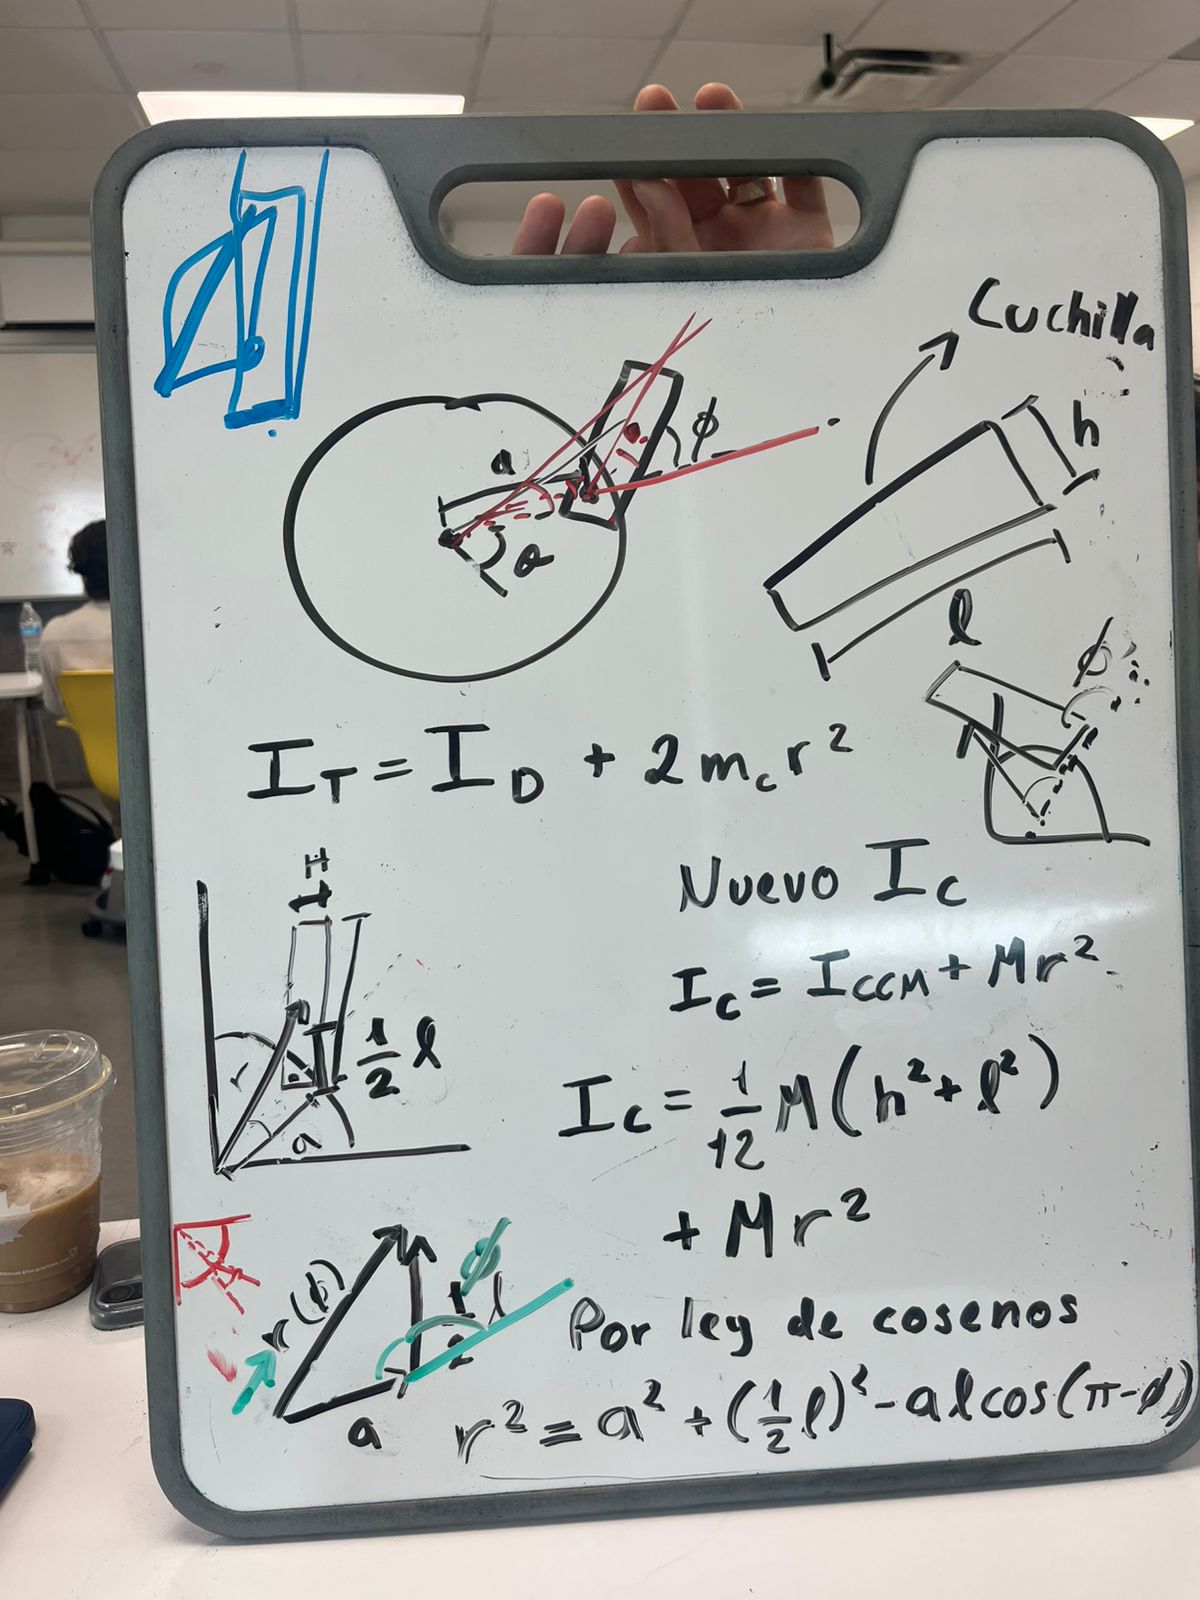 Cuchilla
h
ϕ
a
θ
l
ϕ
I_T = I_D + 2 m_c r²
Nuevo I_C
I_C = I_CCM + Mr²
r
½ l
a
I_C = 1/12 M (h² + l²)
+ Mr²
r(ϕ)
ϕ
½ l
a
Por ley de cosenos
r² = a² + (½ l)² - al cos(π-ϕ)